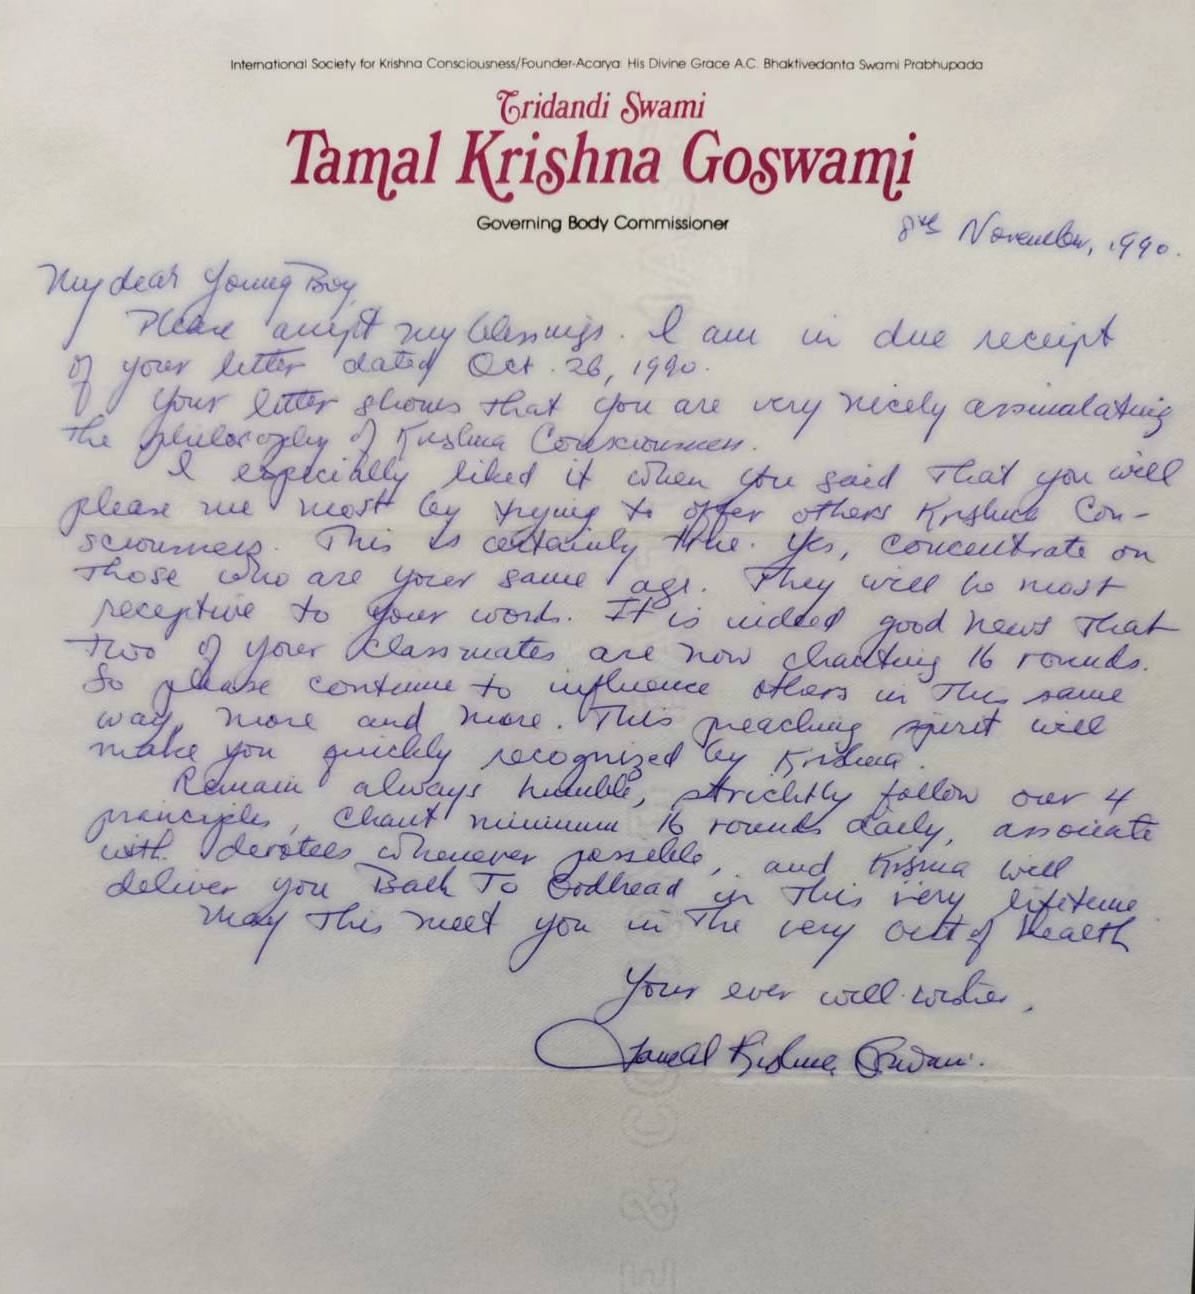 International Society for Krishna Consciousness/Founder-Acarya: His Divine Grace A.C. Bhaktivedanta Swami Prabhupada
Tridandi Swami
Tamal Krishna Goswami
Governing Body Commissioner
8th November, 1990.
My dear Young Boy,
Please accept my blessings. I am in due receipt
of your letter dated Oct. 26, 1990.
Your letter shows that you are very nicely assimalating
the philosophy of Krishna Consciousness.
I especially liked it when you said that you will
please me most by trying to offer others Krishna Con-
sciousness. This is certainly true. Yes, concentrate on
those who are your same age. They will be most
receptive to your words. It is indeed good news that
two of your classmates are now chanting 16 rounds.
So please continue to influence others in this same
way, more and more. This preaching spirit will
make you quickly recognized by Krishna.
Remain always humble, strichtly follow our 4
principles, chant minimum 16 rounds daily, associate
with devotees whenever possible, and Krishna will
deliver you Back To Godhead in this very lifetime
May this meet you in the very best of health
Your ever well-wisher,
Tamal Krishna Goswami.